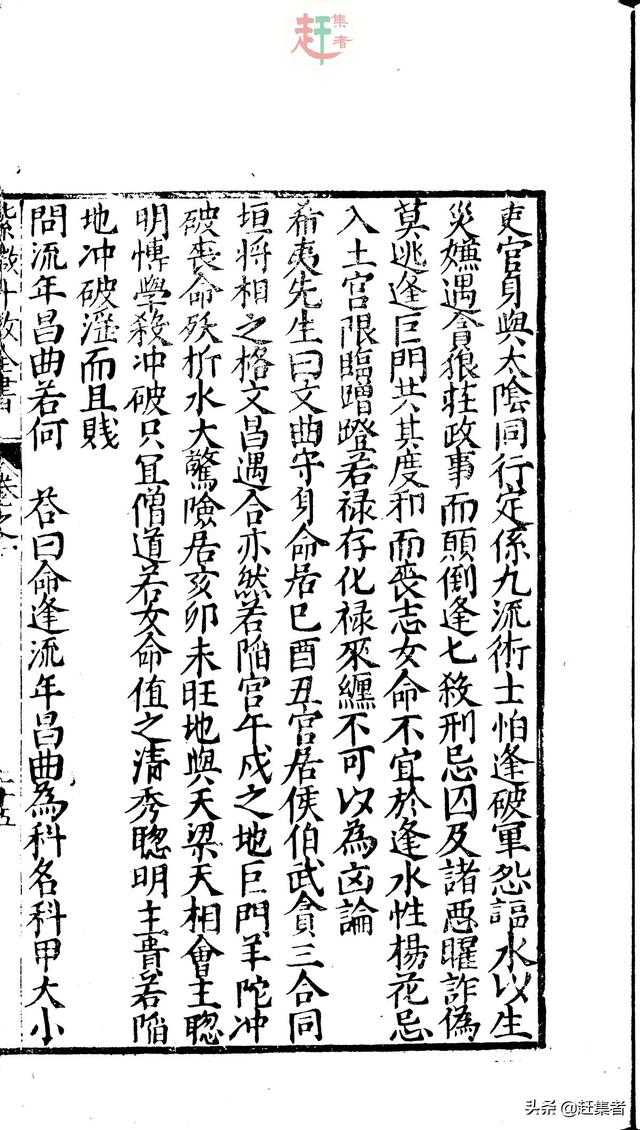 赶集者
吏官身與太陰同行定係九流術士怕逢破軍怨謳水以生
災嫌遇貪狼莅政事而顛倒逢七殺刑忌囚及諸惡曜詐偽
莫逃逢巨門共其度和而喪志女命不宜於逢水性楊花忌
入土宮限臨蹭蹬若祿存化祿來纏不可以為凶論
希夷先生曰文曲守身命居巳酉丑宮居侯伯武貪三合同
垣將相之格文昌遇合亦然若陷宮午戌之地巨門羊陀冲
破喪命殀折水大驚險居亥卯未旺地與天梁天相會主聰
明博學殺冲破只宜僧道若女命值之清秀聰明主貴若陷
地冲破淫而且賤
問流年昌曲若何　荅曰命逢流年昌曲為科名科甲大小
紫微斗數全書　卷之一
頭条 @赶集者